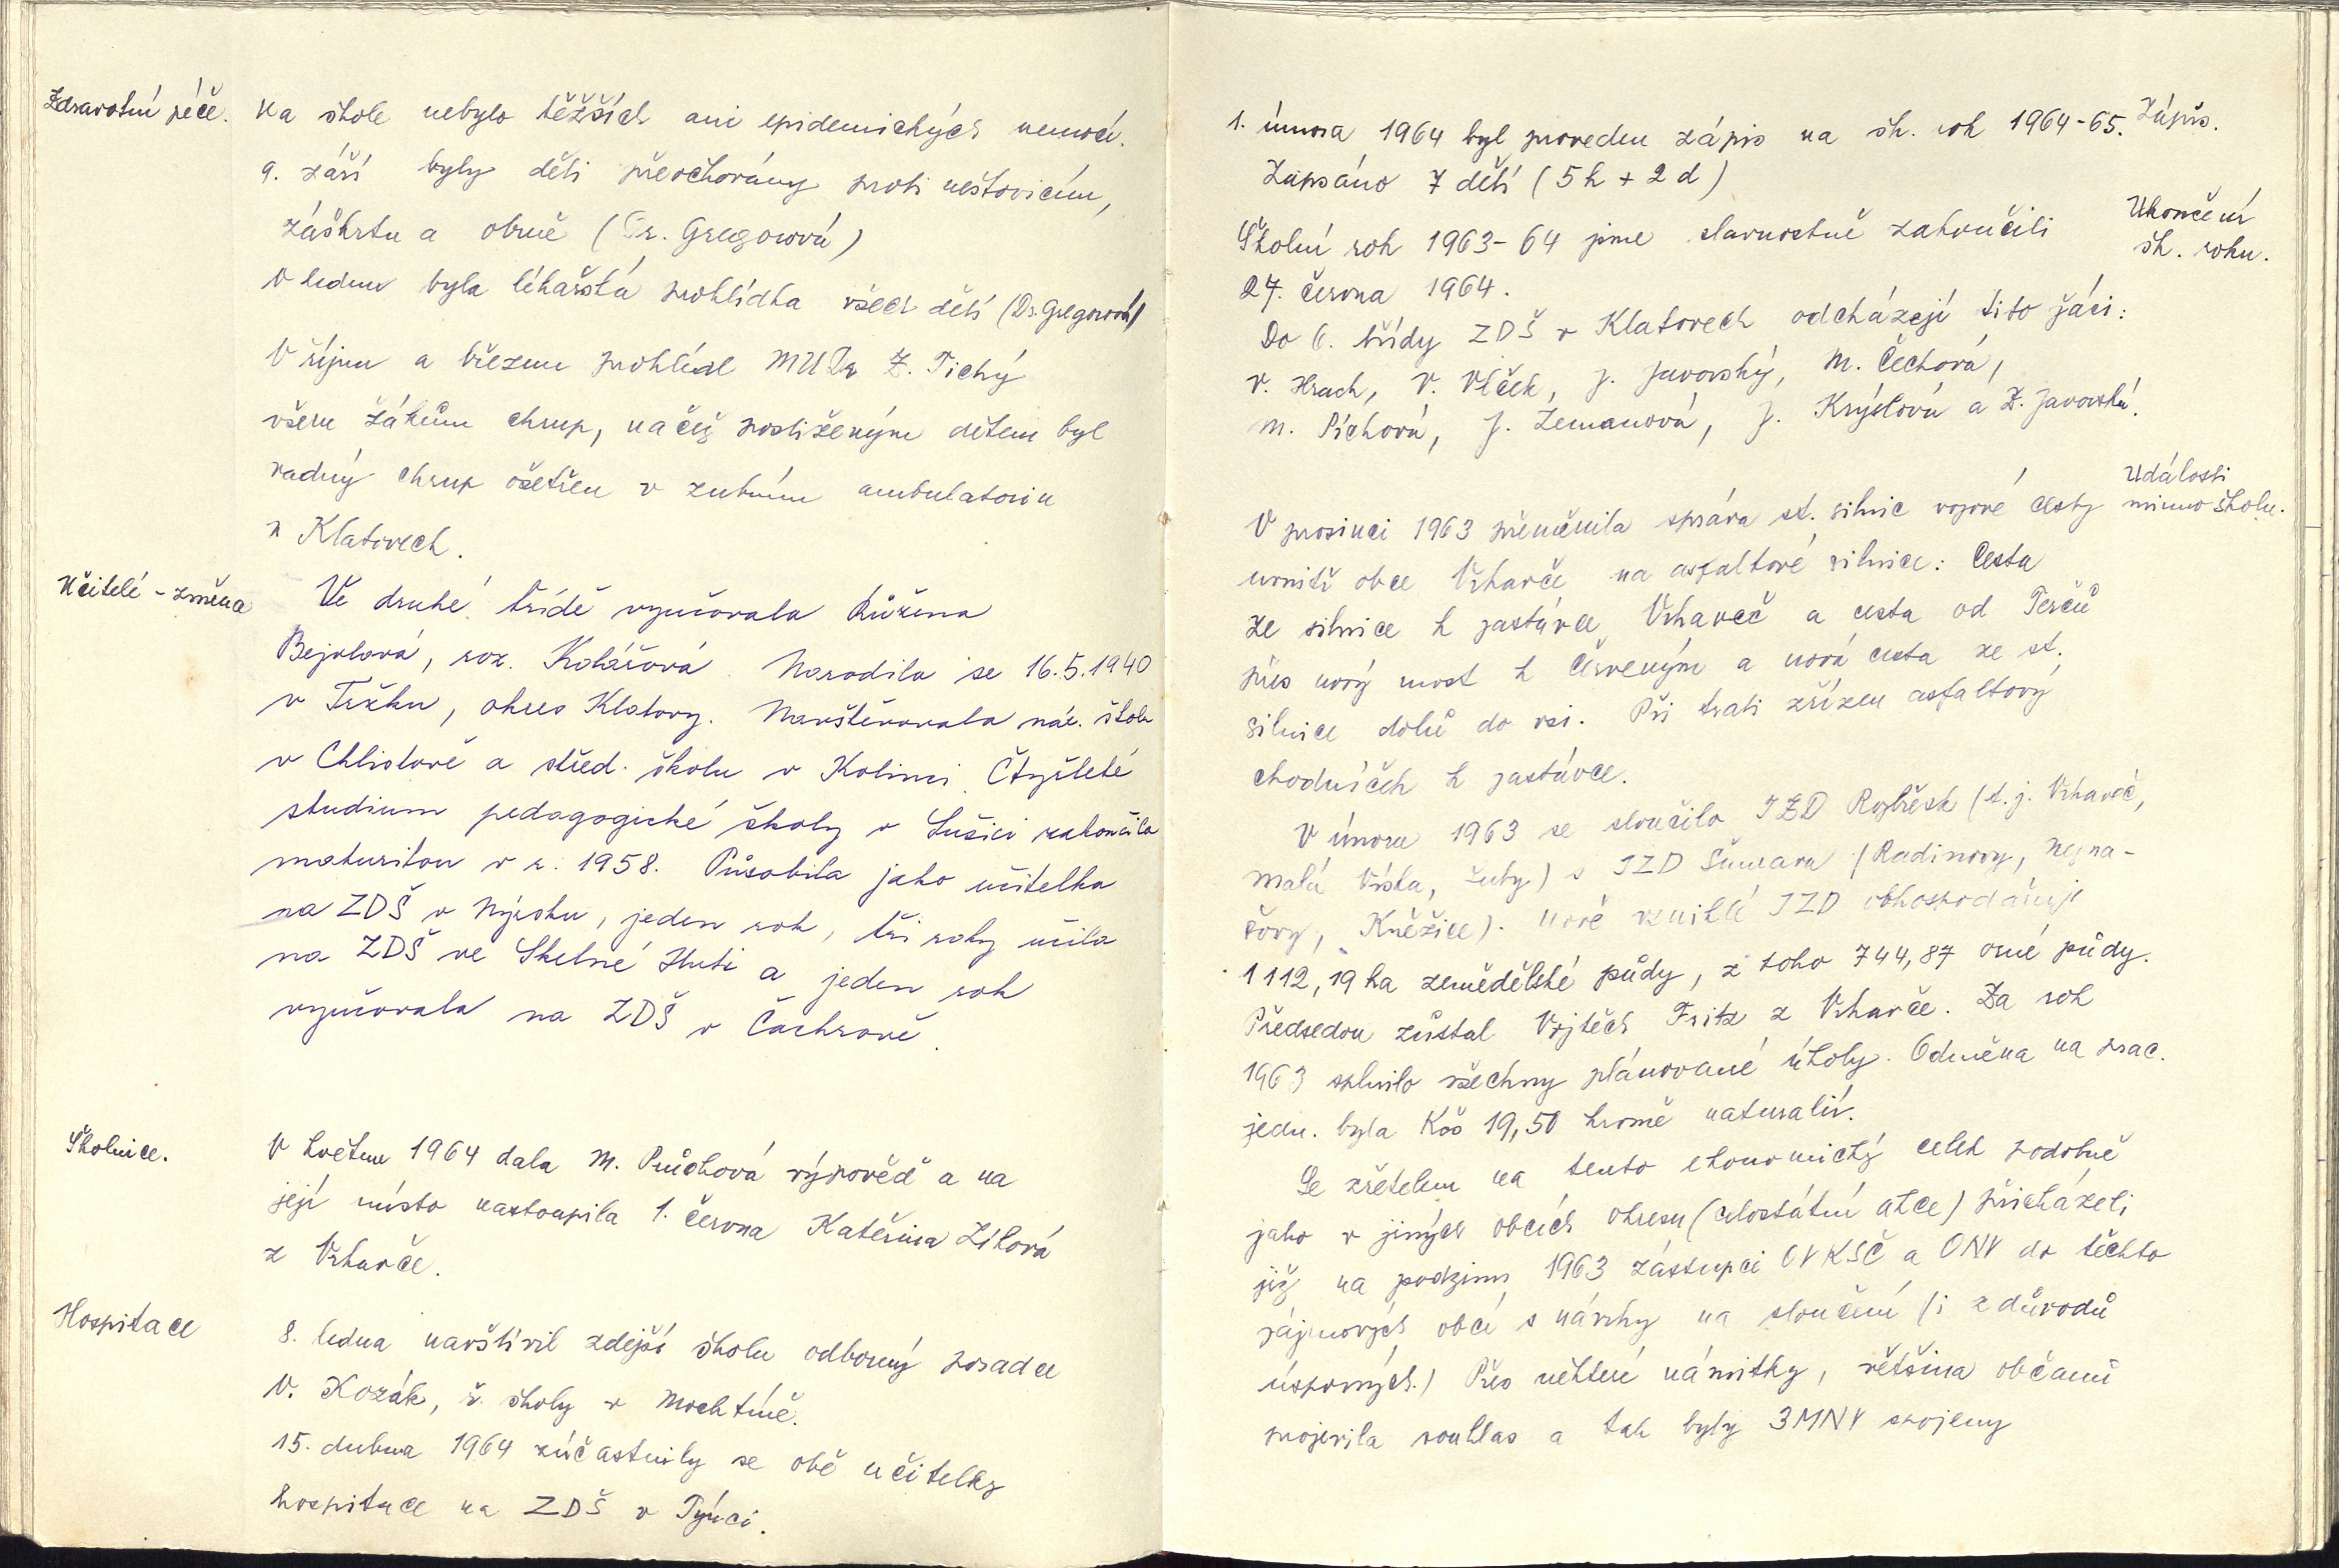 Zdravotní péče.
Na škole nebylo těžších ani epidemických nemocí.
9. září byly děti přeočkovány proti neštovicím,
záškrtu a obrně (Dr. Gregorová)
V lednu byla lékařská prohlídka všech dětí (Dr. Gregorová)
V říjnu a březnu prohlédl MUDr Z. Tichý
všem žákům chrup, načež postiženým dětem byl
vadný chrup ošetřen v zubním ambulatoriu
v Klatovech.
Učitelé - změna
Ve druhé třídě vyučovala Růžena
Bejvlová, roz. Kolářová. Narodila se 16.5.1940
v Tržku, okres Klatovy. Navštěvovala nár. školu
v Chlistově a střed. školu v Kolinci. Čtyřleté
studium pedagogické školy v Sušici zakončila
maturitou v r. 1958. Působila jako učitelka
na ZDŠ v Nýrsku, jeden rok, tři roky učila
na ZDŠ ve Skelné Huti a jeden rok
vyučovala na ZDŠ v Čachrově.
Školnice.
V květnu 1964 dala M. výpověď a na
její místo nastoupila 1. června Kateřina Zítová
z Vrhavče.
Hospitace
8. ledna navštívil zdejší školu odborný poradce
V. Kozák, ř. školy v Mochtíně.
15. dubna 1964 zúčastnily se obě učitelky
hospitace na ZDŠ v Týnci.
1. února 1964 byl proveden zápis na šk. rok 1964-65.
Zápis.
Zapsáno 7 dětí (5 h + 2 d)
Školní rok 1963-64 jsme slavnostně zakončili
Ukončení
šk. roku.
27. června 1964.
Do 6. třídy ZDŠ v Klatovech odcházejí tito žáci:
V. Hrach, V. Vlček, J. Javorský, M. Čechová,
M. Píchová, J. Zemanová, J. Krýslová a Z. Javorská.
Události
mimo školu.
V prosinci 1963 přeměnila správa st. silnic vozové cesty
uvnitř obce Vrhavče na asfaltové silnice: Cesta
ze silnice k zastávce Vrhaveč a cesta od Terčů
přes nový most k Červeným a nová cesta ze st.
silnice dolů do vsi. Při trati zřízen asfaltový
chodníček k zastávce.
V únoru 1963 se sloučilo JZD Rozkřesk (t. j. Vrhaveč,
Malá Víska, Luby) s JZD Šumava (Radinovy, Nezna-
šovy, Kněžice). Nově vzniklé JZD obhospodařuje
1112,19 ha zemědělské půdy, z toho 744,87 orné půdy.
Předsedou zůstal Vojtěch Fritz z Vrhavče. Za rok
1963 splnilo všechny plánované úkoly. Odměna na prac.
jedn. byla Kčs 19,50 kromě naturalií.
Se zřetelem na tento ekonomický celek podobně
jako v jiných obcích okresu (celostátní akce) přicházeli
již na podzim 1963 zástupci OV KSČ a ONV do těchto
zájmových obcí s návrhy na sloučení (i z důvodů
úsporných.) Přes některé námitky, většina občanů
projevila souhlas a tak byly 3MNV spojeny